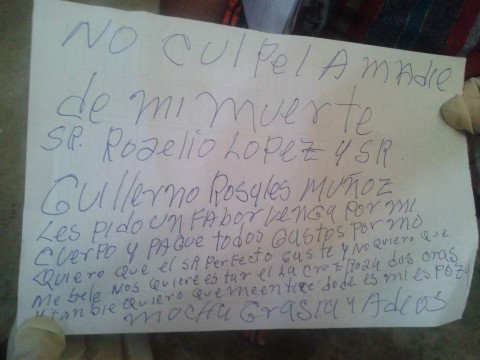 NO CULPEL A NADIE
de mi muerte
SR. Rogelio LOPEZ Y SR.
Guillermo Rosyles MUÑOZ
Les Pido un FAbor venga Por mi
Cuerpo y PAGUE todos Gustos Por mo
Quiero que el SR Perfecto Gaste y No quiero que
me bele Nos quiere estar el LA CrUZ ROJA dos oras
y tanbie quiero que me entire dode es mi esPoZa
mocha Grasia y AdioS